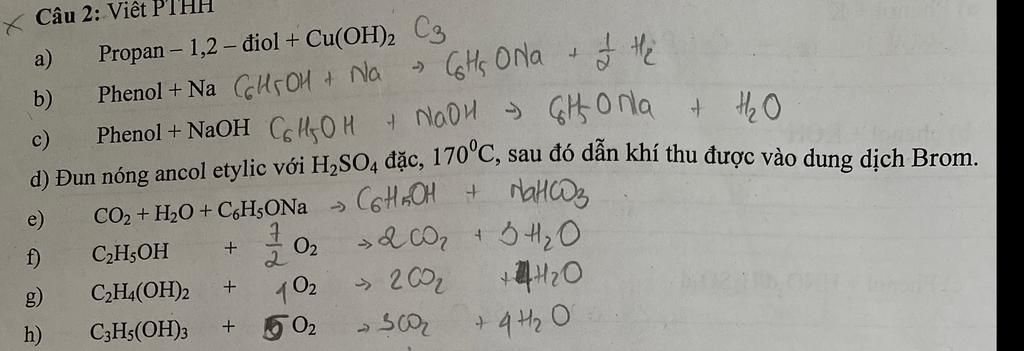 Câu 2: Viết PTHH
a) Propan – 1,2 – điol + Cu(OH)₂ C3
b) Phenol + Na C6H5OH + Na → C6H5ONa + 1/2 H2
c) Phenol + NaOH C6H5OH + NaOH → C6H5ONa + H2O
d) Đun nóng ancol etylic với H₂SO₄ đặc, 170⁰C, sau đó dẫn khí thu được vào dung dịch Brom.
e) CO₂ + H₂O + C₆H₅ONa → C6H5OH + NaHCO3
f) C₂H₅OH + 7/2 O₂ → 2CO2 + 3H2O
g) C₂H₄(OH)₂ + O₂ → 2CO2 + H2O
h) C₃H₅(OH)₃ + 5 O₂ → 3CO2 + 4H2O